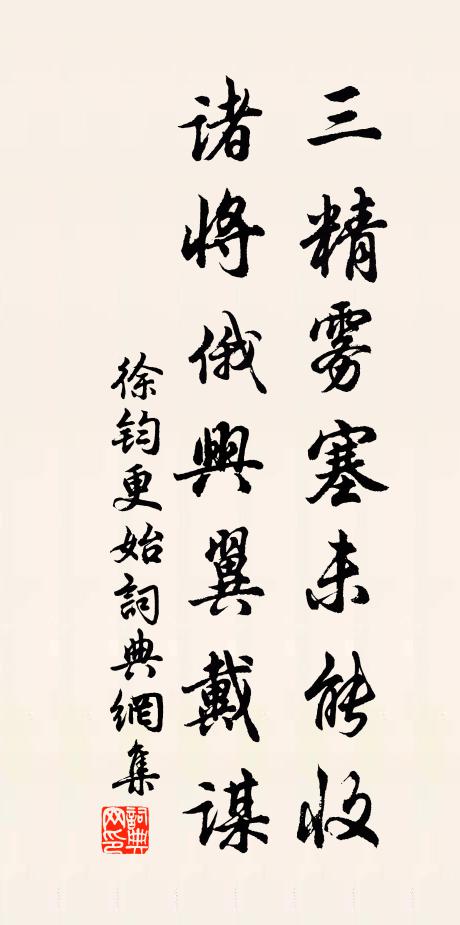 三精雾塞未能收
诸将俄興翼戴谋
徐钧更始詞典網集
詞典网印